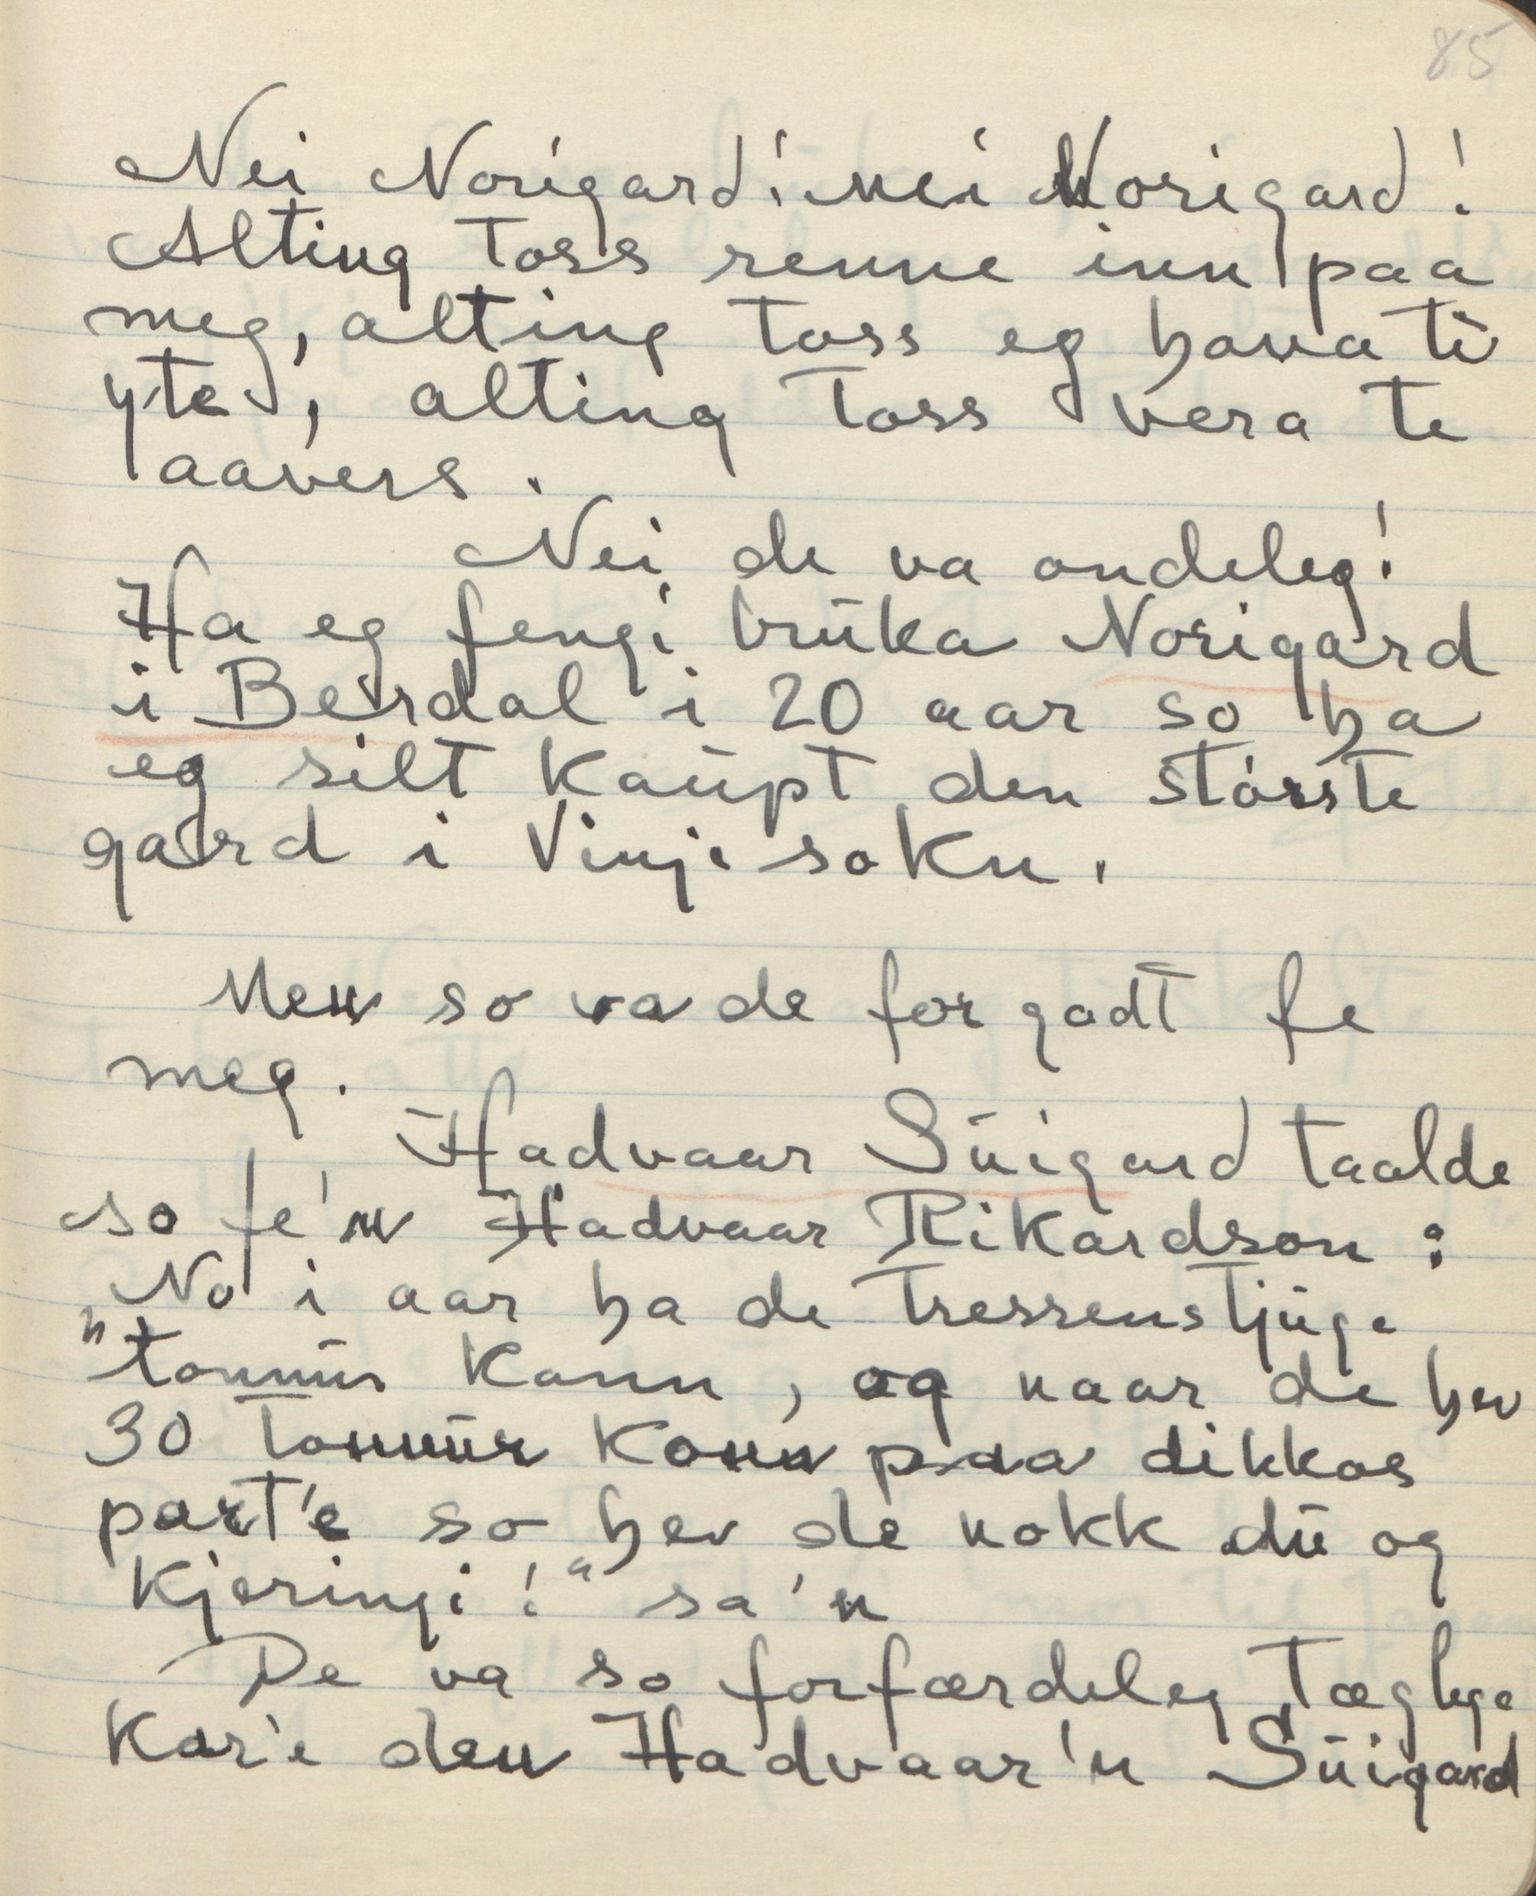 85
Nei Norigard! nei Norigard!
Alting toss renne inn paa
meg, alting toss eg hava ti
yte, alting toss vera te
aavers.
Nei de va ondeleg!
Ha eg fengi brüka Norigard
i Berdal i 20 aar so ha
eg silt kaüpt den störste
gard i Vinje sokn.
Men so va de for godt fe
meg.
Hadvaar Süigard taalde
so fe'n Hadvaar Rikardson:
"No i aar ha de tressenstjüge
tonnür konn, og naar de hev
30 tonnür konn paa dikkos
part'e so hev de nokk dü og
kjeringi!" sa'n
De va so forfærdeleg tæglege
kar'e den Hadvaar'n Süigard